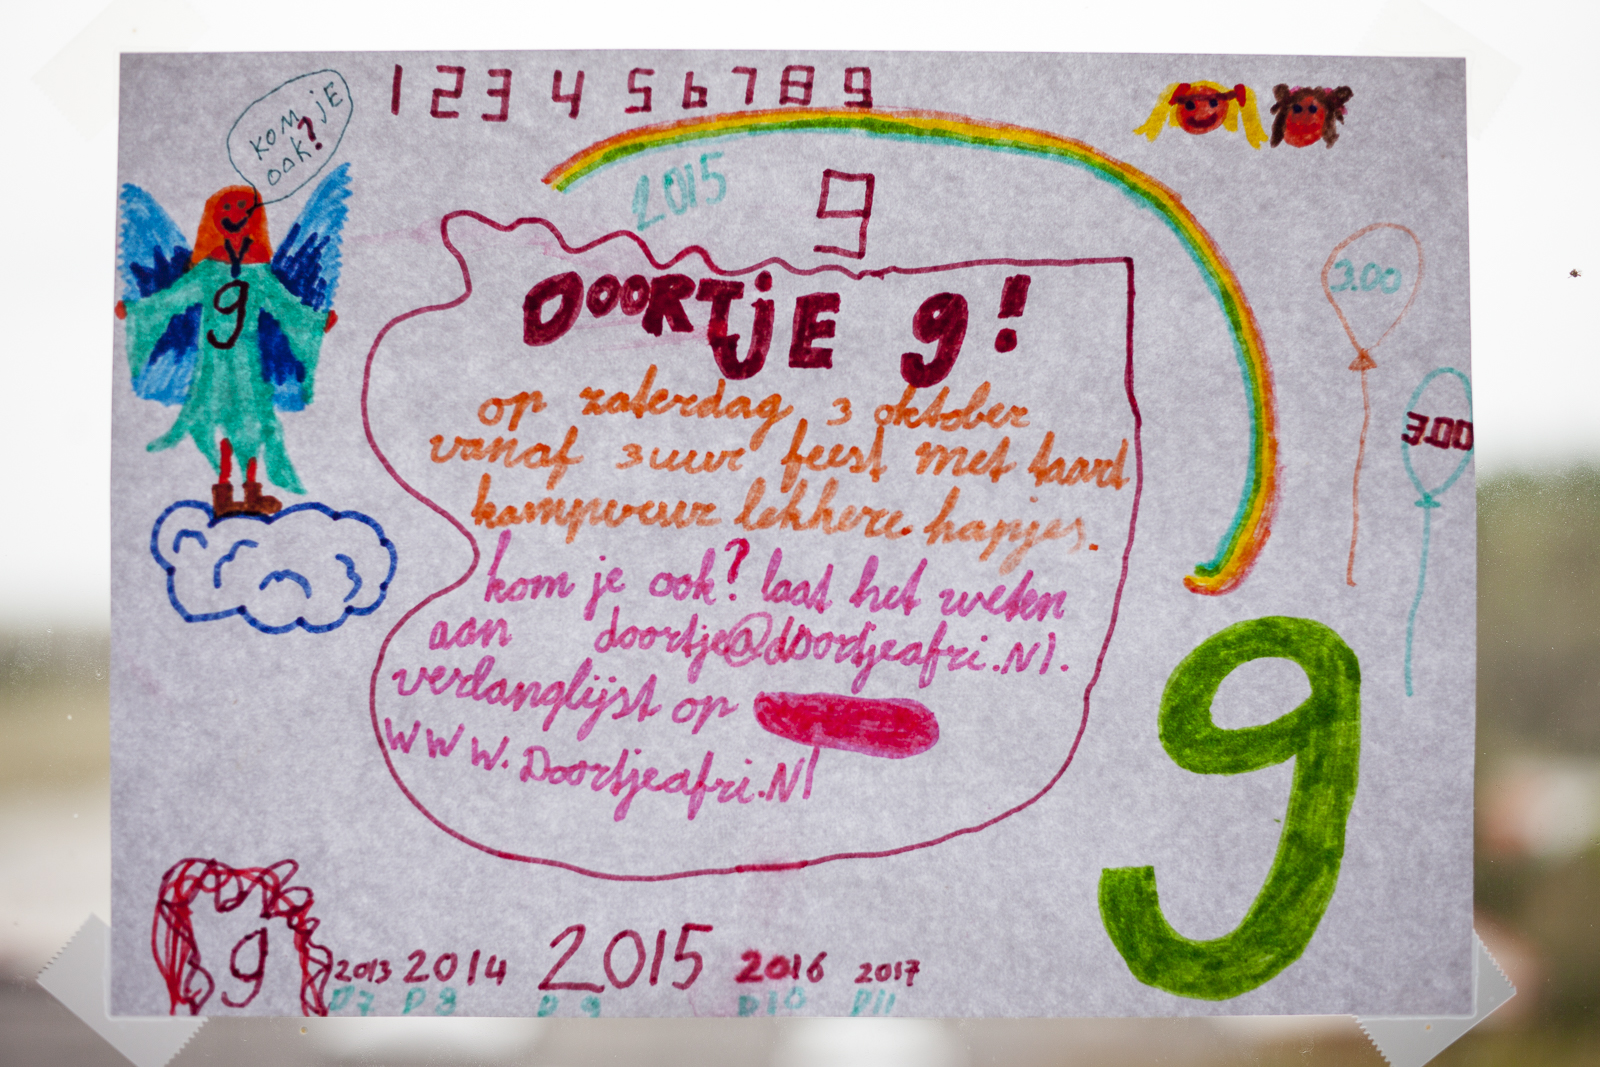 1 2 3 4 5 6 7 8 9
KOM JE
OOK?
2015
9
9
DOORTJE 9!
op zaterdag 3 oktober
vanaf 3 uur feest met taart
kampvuur lekkere hapjes.
kom je ook? laat het weten
aan doortje@doortjeafri.Nl.
verlanglijst op
WWW.Doortjeafri.Nl
3.00
3.00
9
9
2013 2014 2015 2016 2017
D7 D8 D9 D10 D11